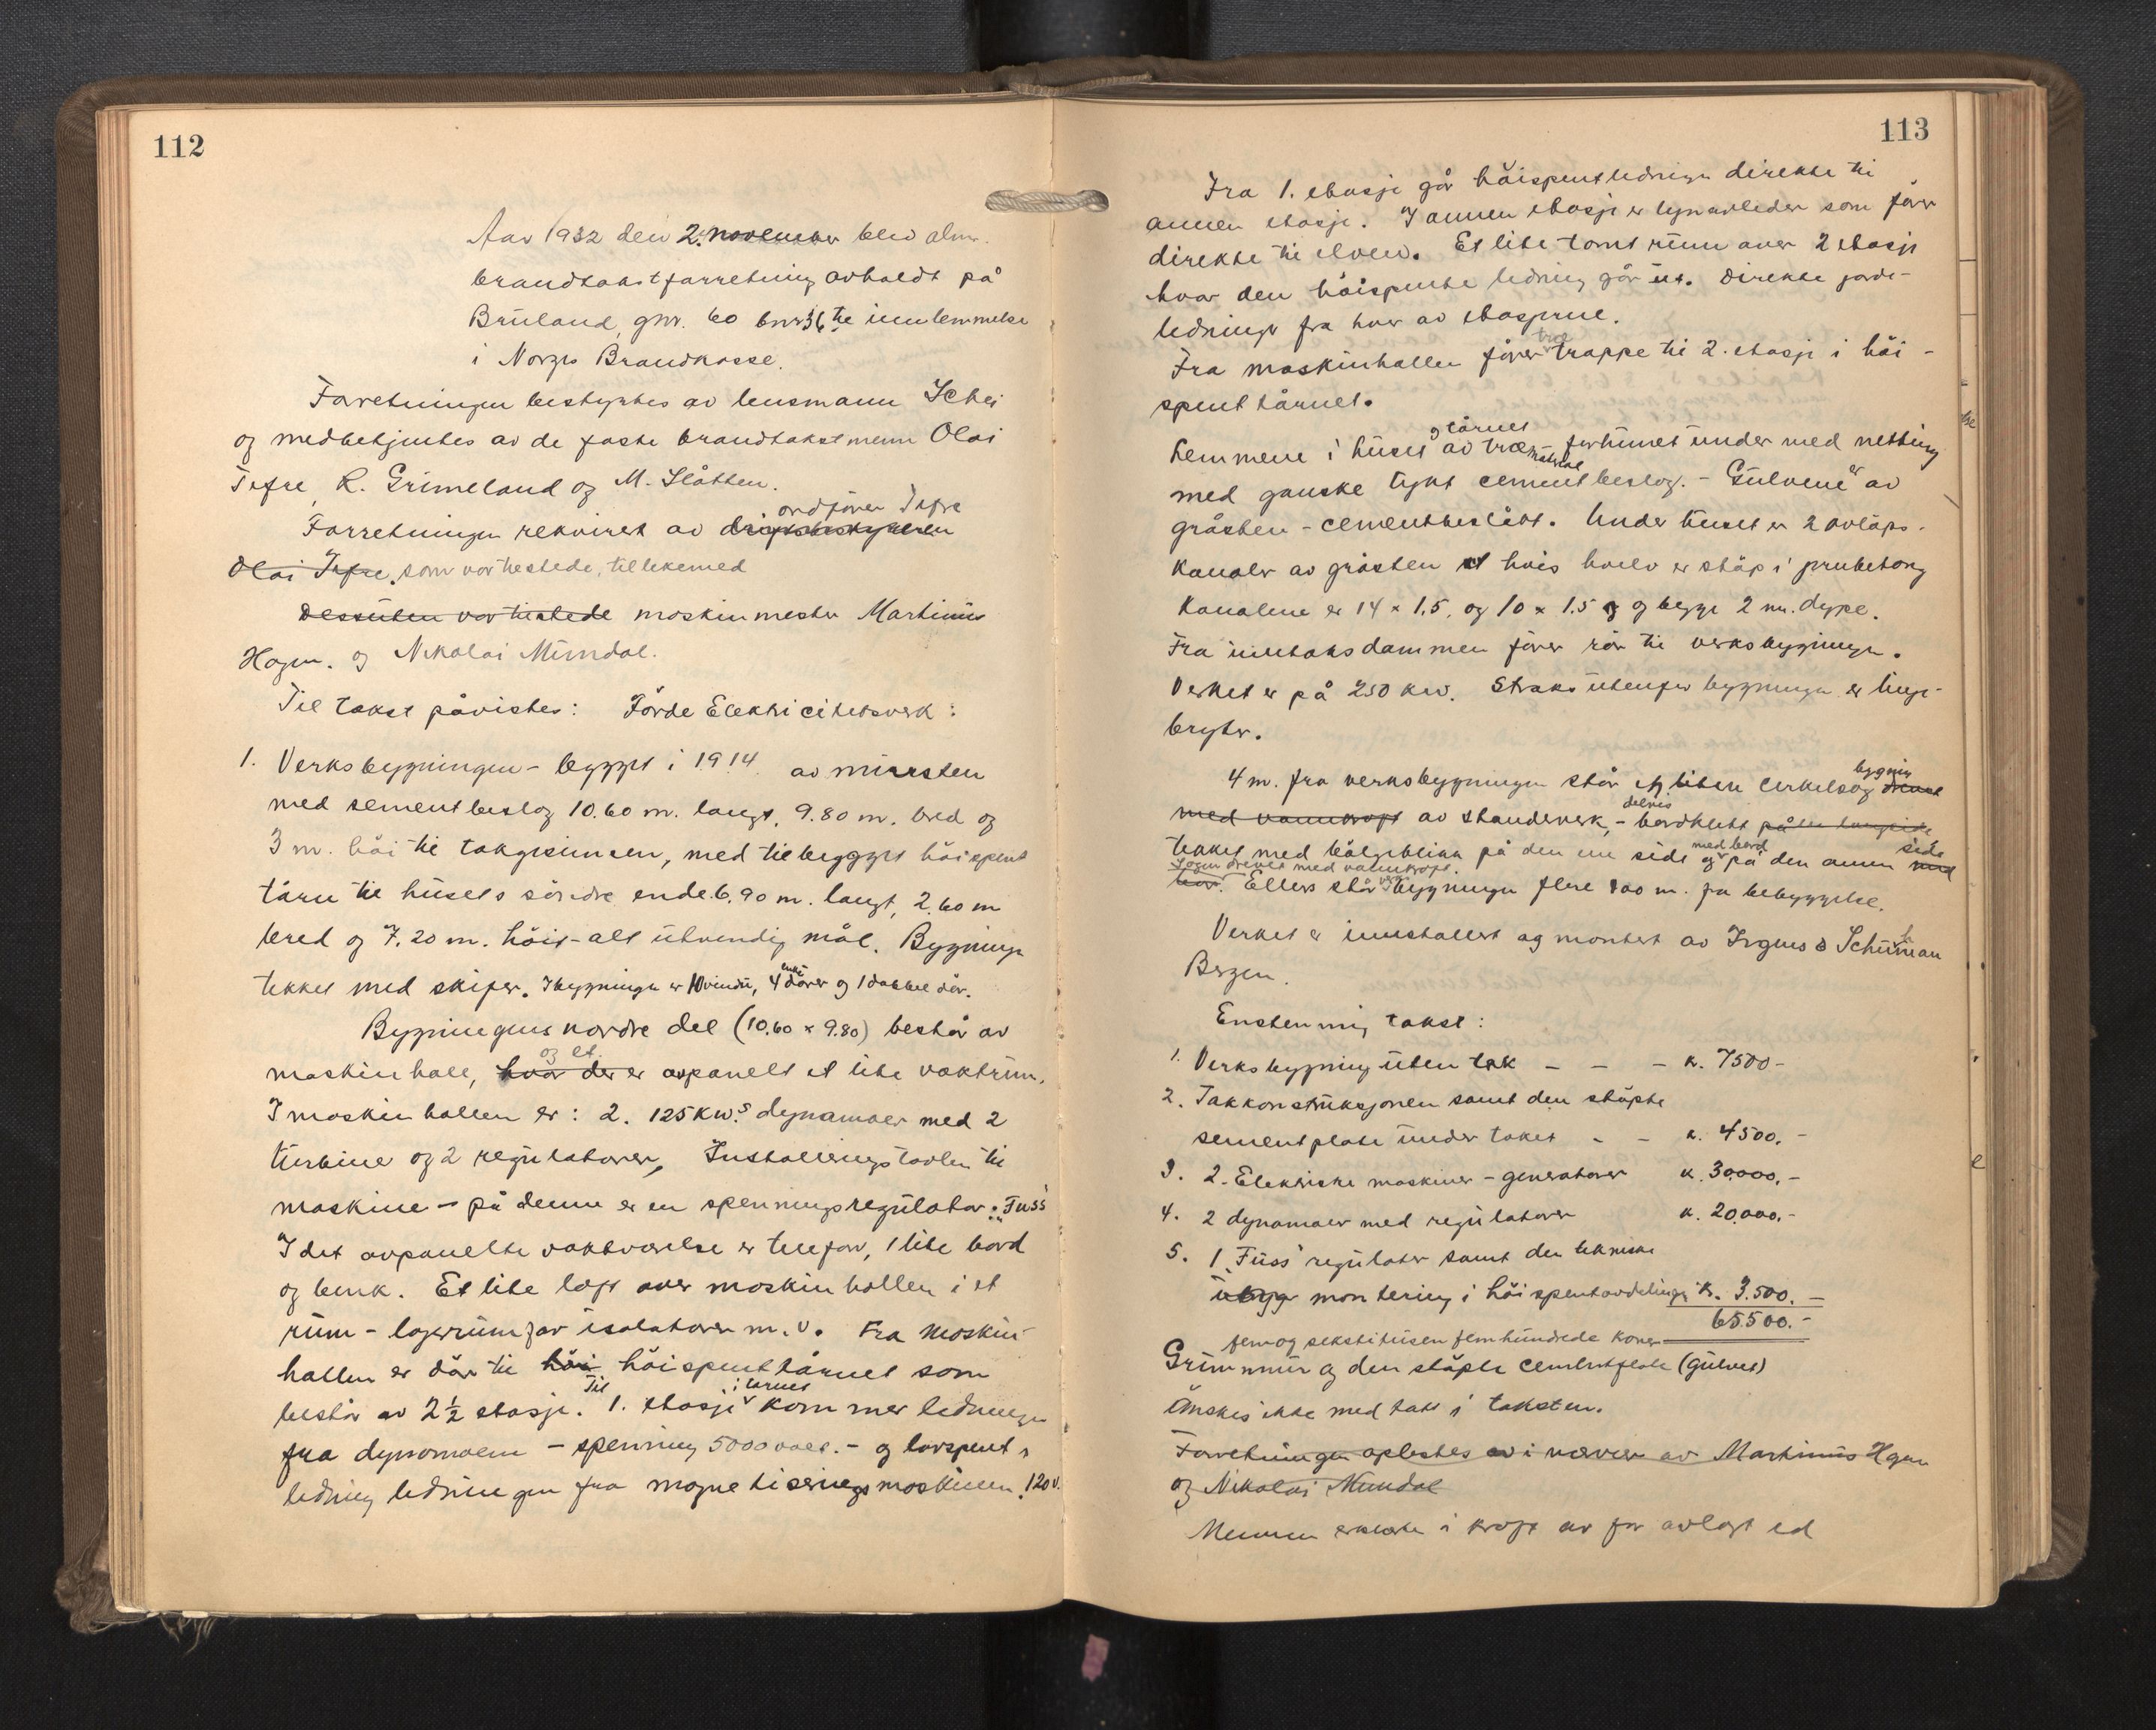 112
Aar 1932 den 2. november blev alm.
brandtakstforretning avholdt på
Brüland, gnr. 60 bnr 36 til innlemmelse
i Norges Brandkasse.
Forretningen bestyrtes av lensmann Schei
og medbetjentes av de faste brandtakstmenn Olai
Tefre, R. Grimeland og M. Slåtten.
ordfører Tefre
Forretningen rekvirert av driftsbestyreren
Olai Tefre, som var tilstede, tillikemed
Dessuten var tilstede maskinmester Martinus
Hagen. og Nikolai Mundal.
Til takst påvistes: Förde Elektricitetsverk:
1. Verksbygningen - bygget i 1914 av mursten
med sementbeslag 10.60 m. langt, 9.80 m. bred og
3 m. höi til takgesimsen, med tilbygget höispent
tårn til husets söndre ende 6.90 m. langt, 2.60 m
bred og 7.20 m. höit - alt utvendig mål. Bygningen
enke
tekket med skifer. I bygningen er 10 vindu, 4 dörer og 1 dobbel dör.
Bygningens nordre del (10.60 x 9.80) består av
og et
maskinhall, hvor der er avpanelt et lite vaktrum.
I maskinhallen er: 2. 125 KW.s dynamoer med 2
turbine og 2 regulatorer, Installeringstavlen til
maskine - på denne er en spenningsregulator: Fuss
I det avpanelte vaktværelse er telefon, 1 lite bord
og benk. Et lite loft over maskinhallen i et
rum - lagerrum for isolatorer m.v. Fra maskin
hallen er dör til höi höispenttårnet som
Til i tårnet
består av 2 ½ etasje. 1. etasje kommer ledninger
fra dynamoene - spenning 5000 volt. - og lavspent
ledning ledningen fra magnetiseringsmaskinen. 120 v.
113
Fra 1. etasje går höispentledningen direkte til
annen etasje. I annen etasje er lynavleder som förer
direkte til elven. Et lite tomt rum over 2 etasje
hvor den höispente ledning går ut. Direkte jord-
ledninger fra hver av etasjerne.
træ
Fra maskinhallen förer trappe til 2. etasje i höi-
spenttårnet.
og tårnet
Lemmene i huset av træmaterial - forhunet under med netting
med ganske tynt cementbeslag. - Gulvene er av
gråsten - cementbeslått. Under huset er 2 avlöps-
kanaler av gråsten hvis hvelv er stöp i  betong
Kanalene er 14 x 1.5. og 10 x 1.5 og begge 2 m. dype.
Fra inntaksdammen förer rör til verksbygningen.
Verket er på 250 kw. Straks utenfor bygningen er linje-
bryter.
bygning
4 m. fra verksbygningen står en liten cirkelsag drevet
delvis
med vannkraft av standerverk, - bordkledt på to langside
med bord side
tekket med bölgeblikk på den ene side og på den annen med
Sagen drevet med vannkraft.
bord. Ellers står bygningen flere 100 m. fra bebyggelse.
Verket er innstallert og montert av Irgens & Schuman
Bergen.
Enstemmig takst:
1. Verksbygning uten tak - - - k. 7500-
2. Takkonstruksjonen samt den stöpte
sementplate under taket - - k. 4500.-
3. 2. Elektriske maskiner - generatorer k. 30.000.-
4. 2 dynamoer med regulatorer k. 20.000.-
5. 1 Fuss regulator samt den tekniske
montering i höispentavdelingen k. 3.500.-
65.500.-
femogsekstitusen femhundrede kroner
Grunnmur og den stöpte cementplate (gulvet)
Önskes ikke med tatt i taksten.
Forretningen oplestes i nærvær av Martinus Hagen
og Nikolai Mundal
Mennene erklærte i kraft av för avlagt ed